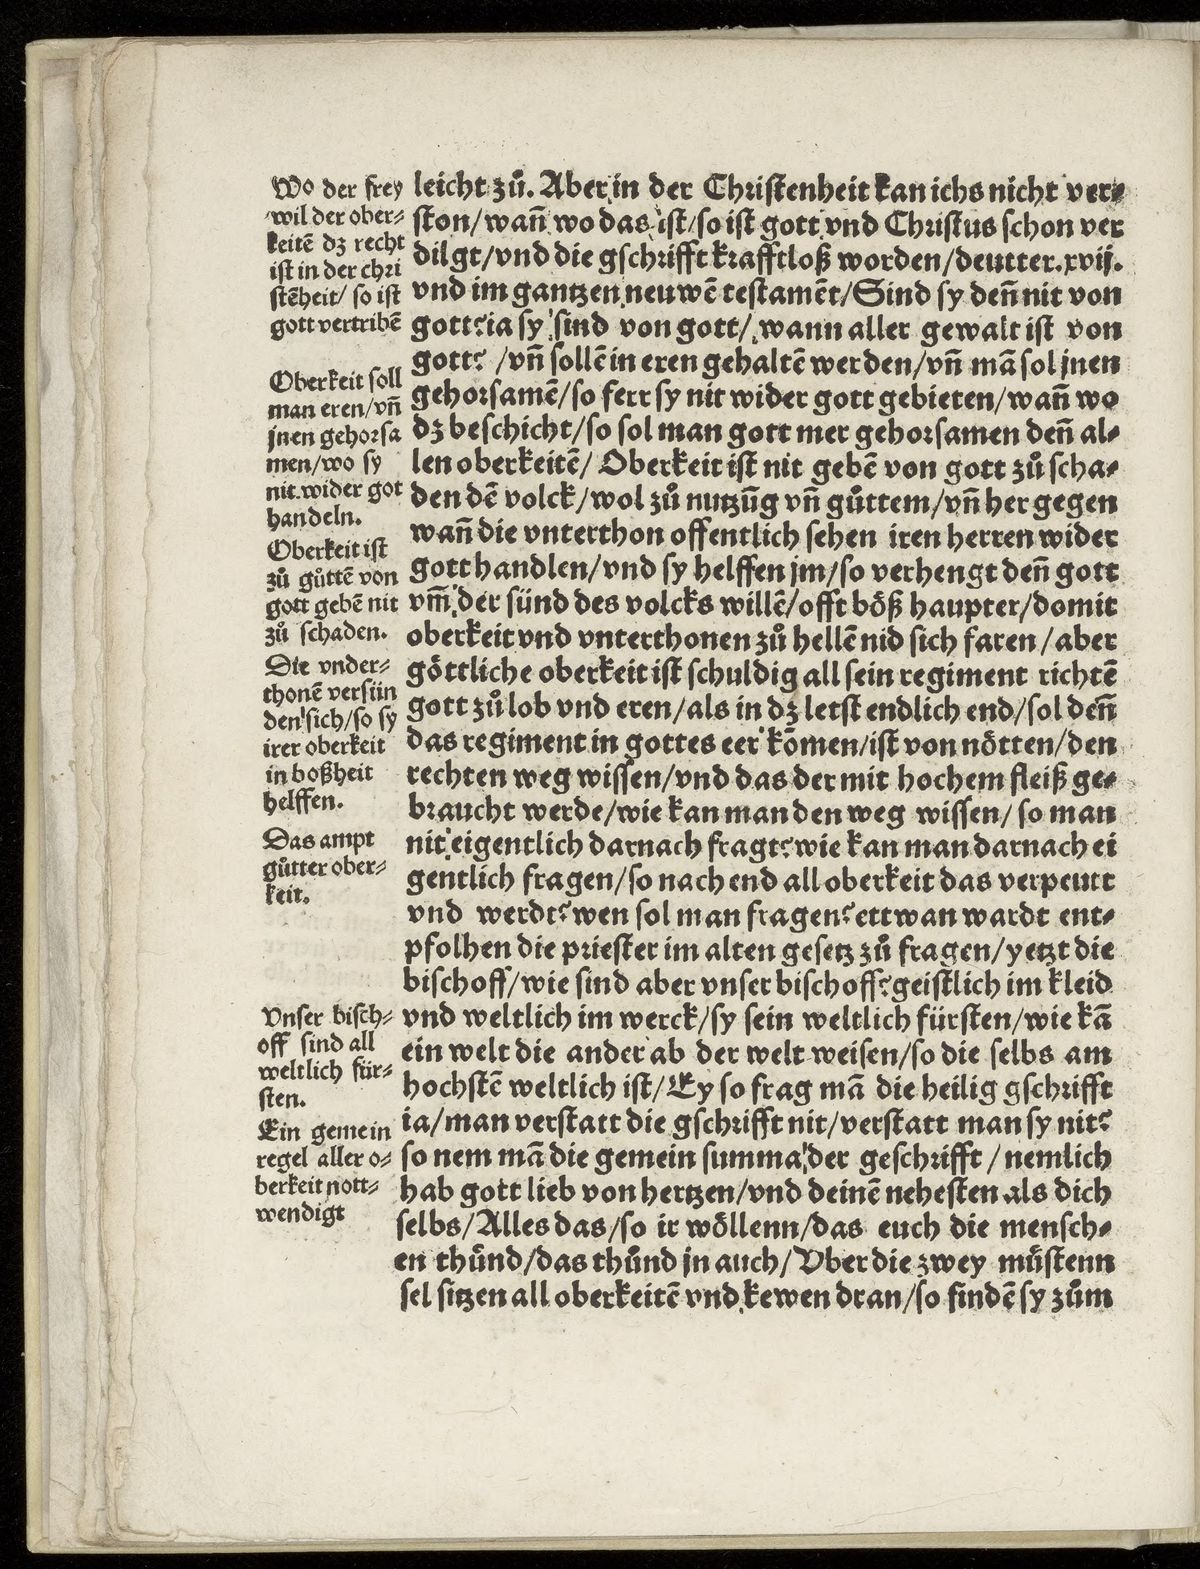 Wo der frey
wil der ober⸗
keitẽ dz recht
ist in der chri
stẽheit/ so ist
gott vertribẽ
Oberkeit soll
man eren/vñ
jnen gehorsa
men/wo sy
nit wider got
handeln.
Oberkeit ist
zů gůttẽ von
gott gebẽ nit
zů schaden.
Die vnder⸗
thonẽ versün
den sich/so sy
irer oberkeit
in boßheit
helffen.
Das ampt
gůtter ober⸗
keit.
Vnser bisch⸗
off sind all
weltlich für⸗
sten.
Ein gemein
regel aller o⸗
berkeit nott⸗
wendigt
leicht zů. Aber in der Christenheit kan ichs nicht ver⸗
ston/wañ wo das ist/so ist gott vnd Christus schon ver
dilgt/vnd die gschrifft krafftloß worden/deutter.xvij.
vnd im gantzen neuwẽ testamẽt/Sind sy deñ nit von
gott? ia sy sind von gott/ wann aller gewalt ist von
gott? /vñ sollẽ in eren gehaltẽ werden/vñ mã sol jnen
gehorsamẽ/so ferr sy nit wider gott gebieten/wañ wo
dz beschicht/so sol man gott mer gehorsamen deñ al⸗
len oberkeitẽ/ Oberkeit ist nit gebẽ von gott zů scha⸗
den dẽ volck/wol zů nutzũg vñ gůttem/vñ her gegen
wañ die vnterthon offentlich sehen iren herren wider
gott handlen/vnd sy helffen jm/so verhengt deñ gott
vm̃ der sünd des volcks willẽ/offt böß haupter/domit
oberkeit vnd vnterthonen zů hellẽ nid sich faren/aber
göttliche oberkeit ist schuldig all sein regiment richtẽ
gott zů lob vnd eren/als in dz letst endlich end/sol deñ
das regiment in gottes eer kõmen/ist von nötten/den
rechten weg wissen/vnd das der mit hochem fleiß ge⸗
braucht werde/wie kan man den weg wissen/ so man
nit eigentlich darnach fragt? wie kan man darnach ei
gentlich fragen/so nach end all oberkeit das verpeutt
vnd werdt? wen sol man fragen? ettwan wardt ent⸗
pfolhen die priester im alten gesetz zů fragen/yetzt die
bischoff/wie sind aber vnser bischoff? geistlich im kleid
vnd weltlich im werck/sy sein weltlich fürsten/wie kã
ein welt die ander ab der welt weisen/so die selbs am
hochstẽ weltlich ist/Ey so frag mã die heilig gschrifft
ia/man verstatt die gschrifft nit/verstatt man sy nit?
so nem mã die gemein summa der geschrifft/nemlich
hab gott lieb von hertzen/vnd deinẽ nehesten als dich
selbs/Alles das/so ir wöllenn/das euch die mensch⸗
en thůnd/das thůnd jn auch/Vber die zwey můstenn
sel sitzen all oberkeitẽ vnd kewen dran/so findẽ sy zům